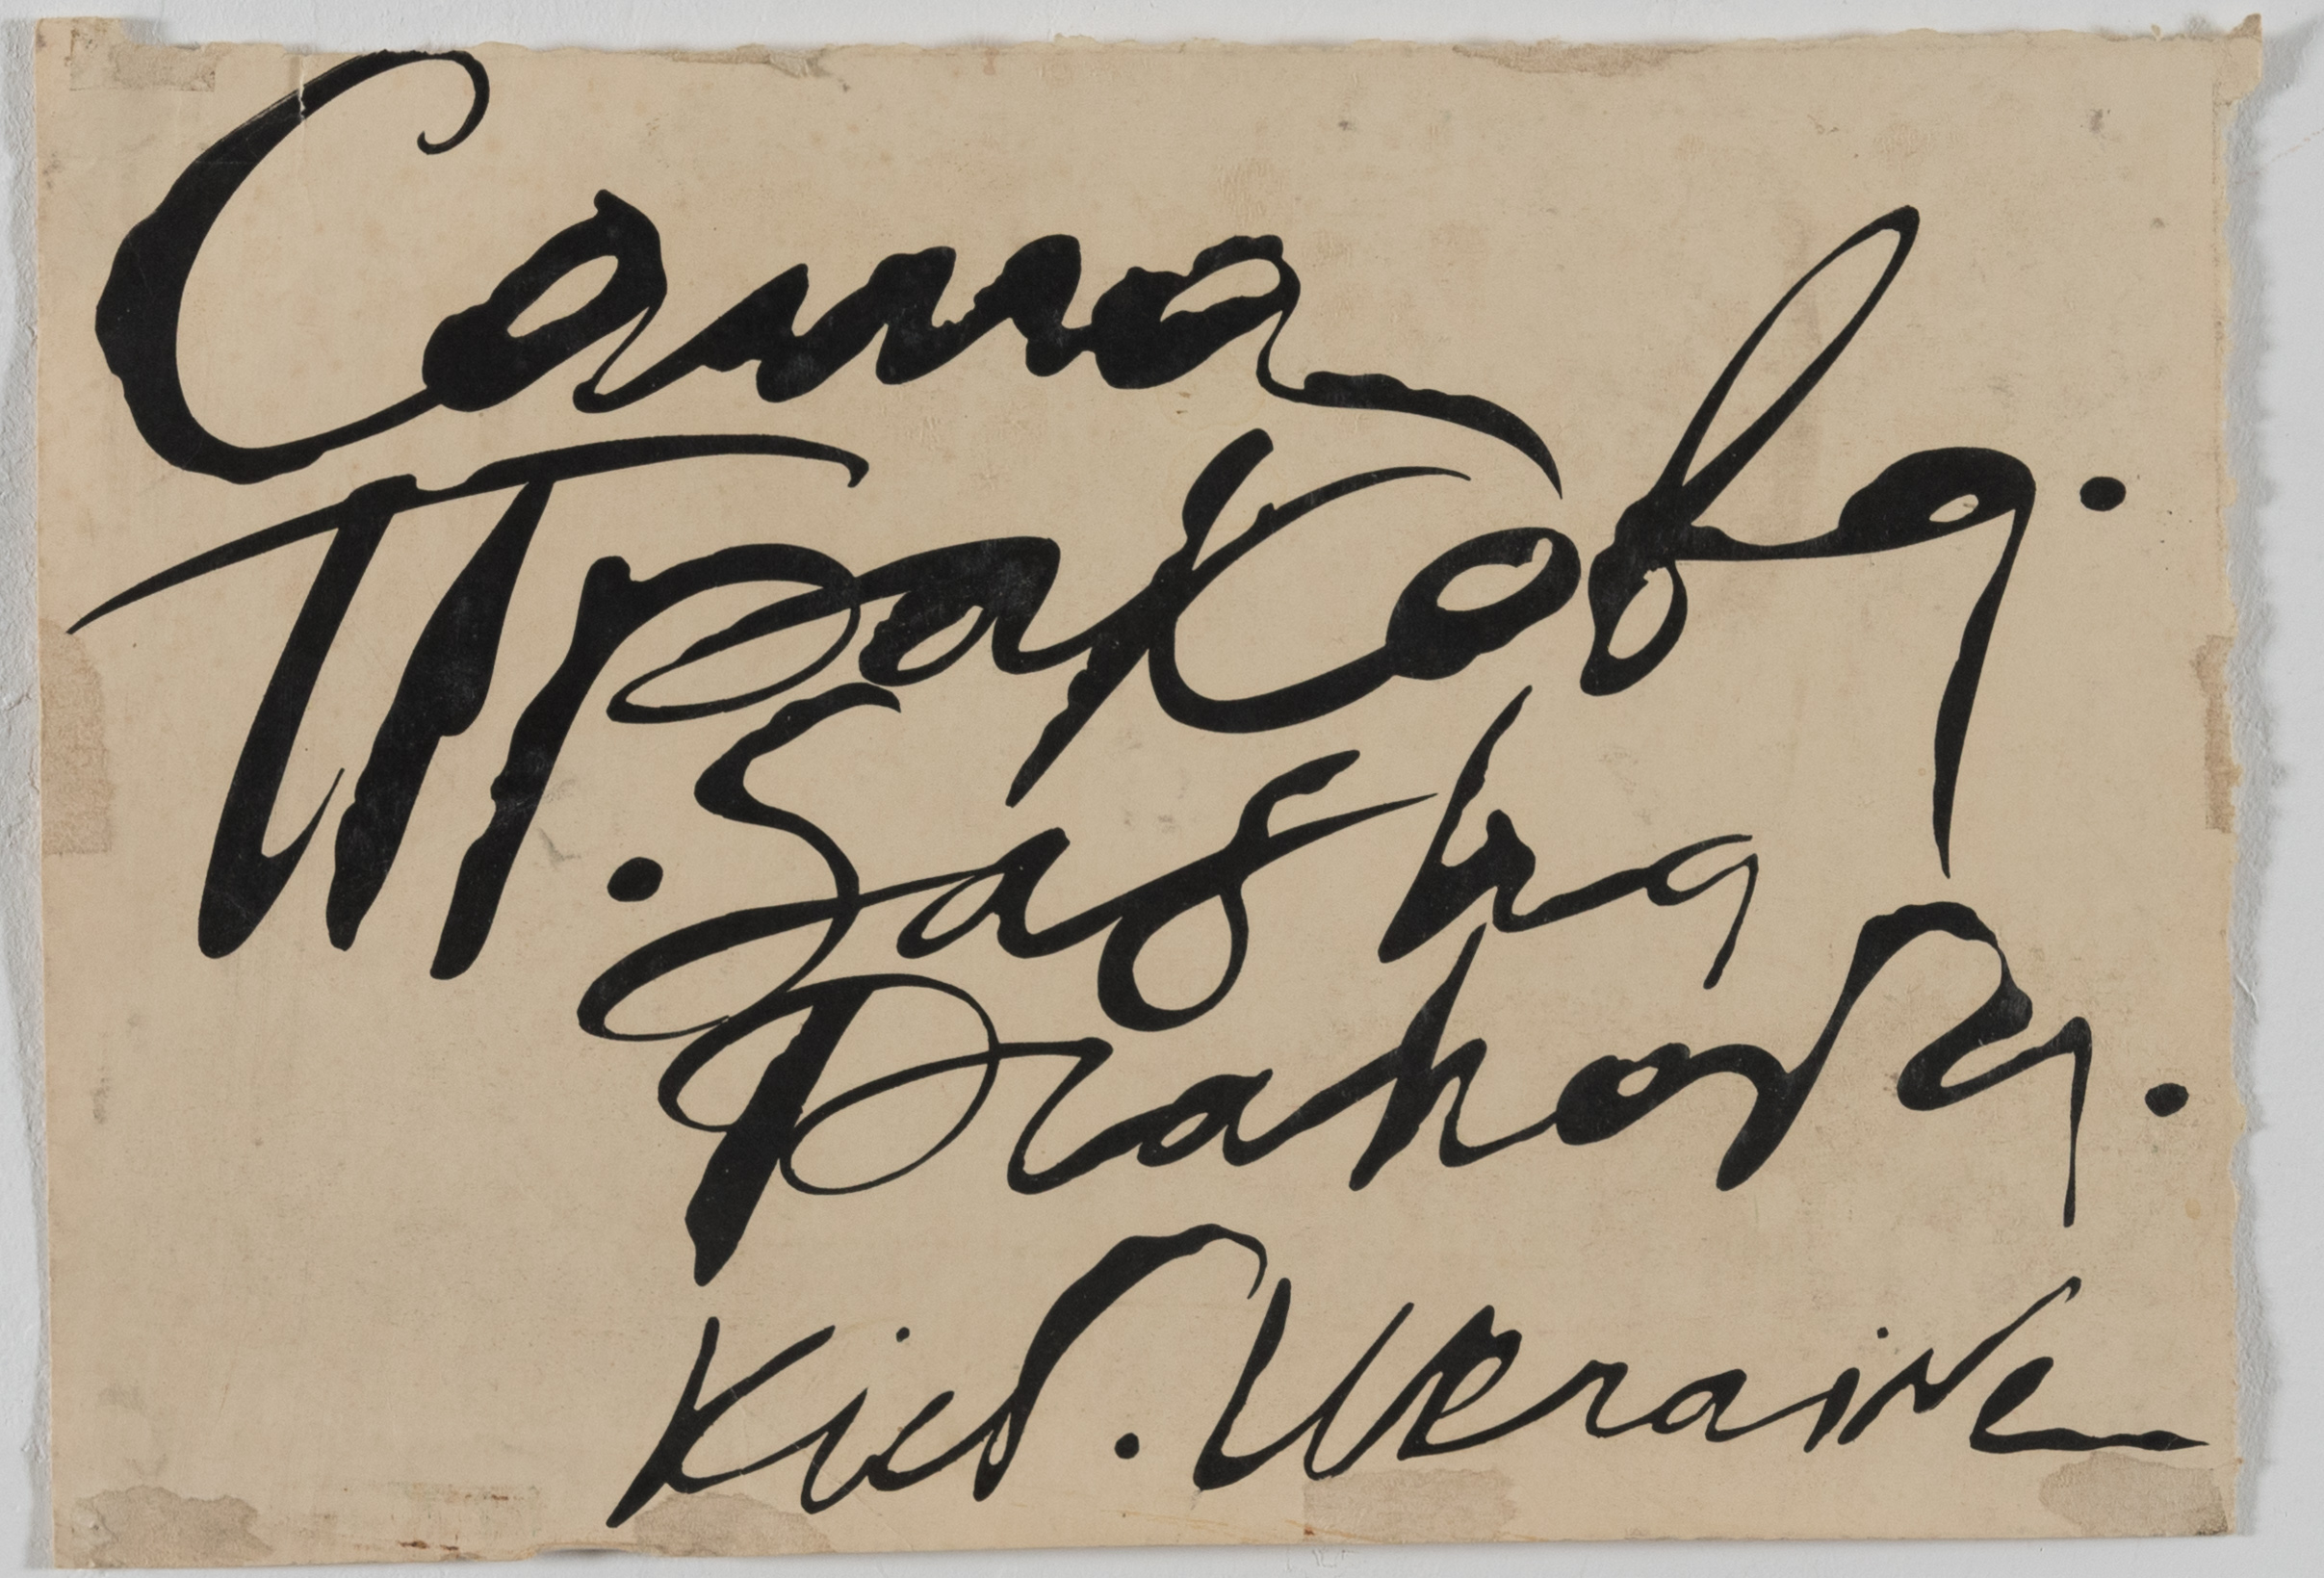 Саша
Прахова.
.Sasha
Prahova.
Kiev. Ukraine